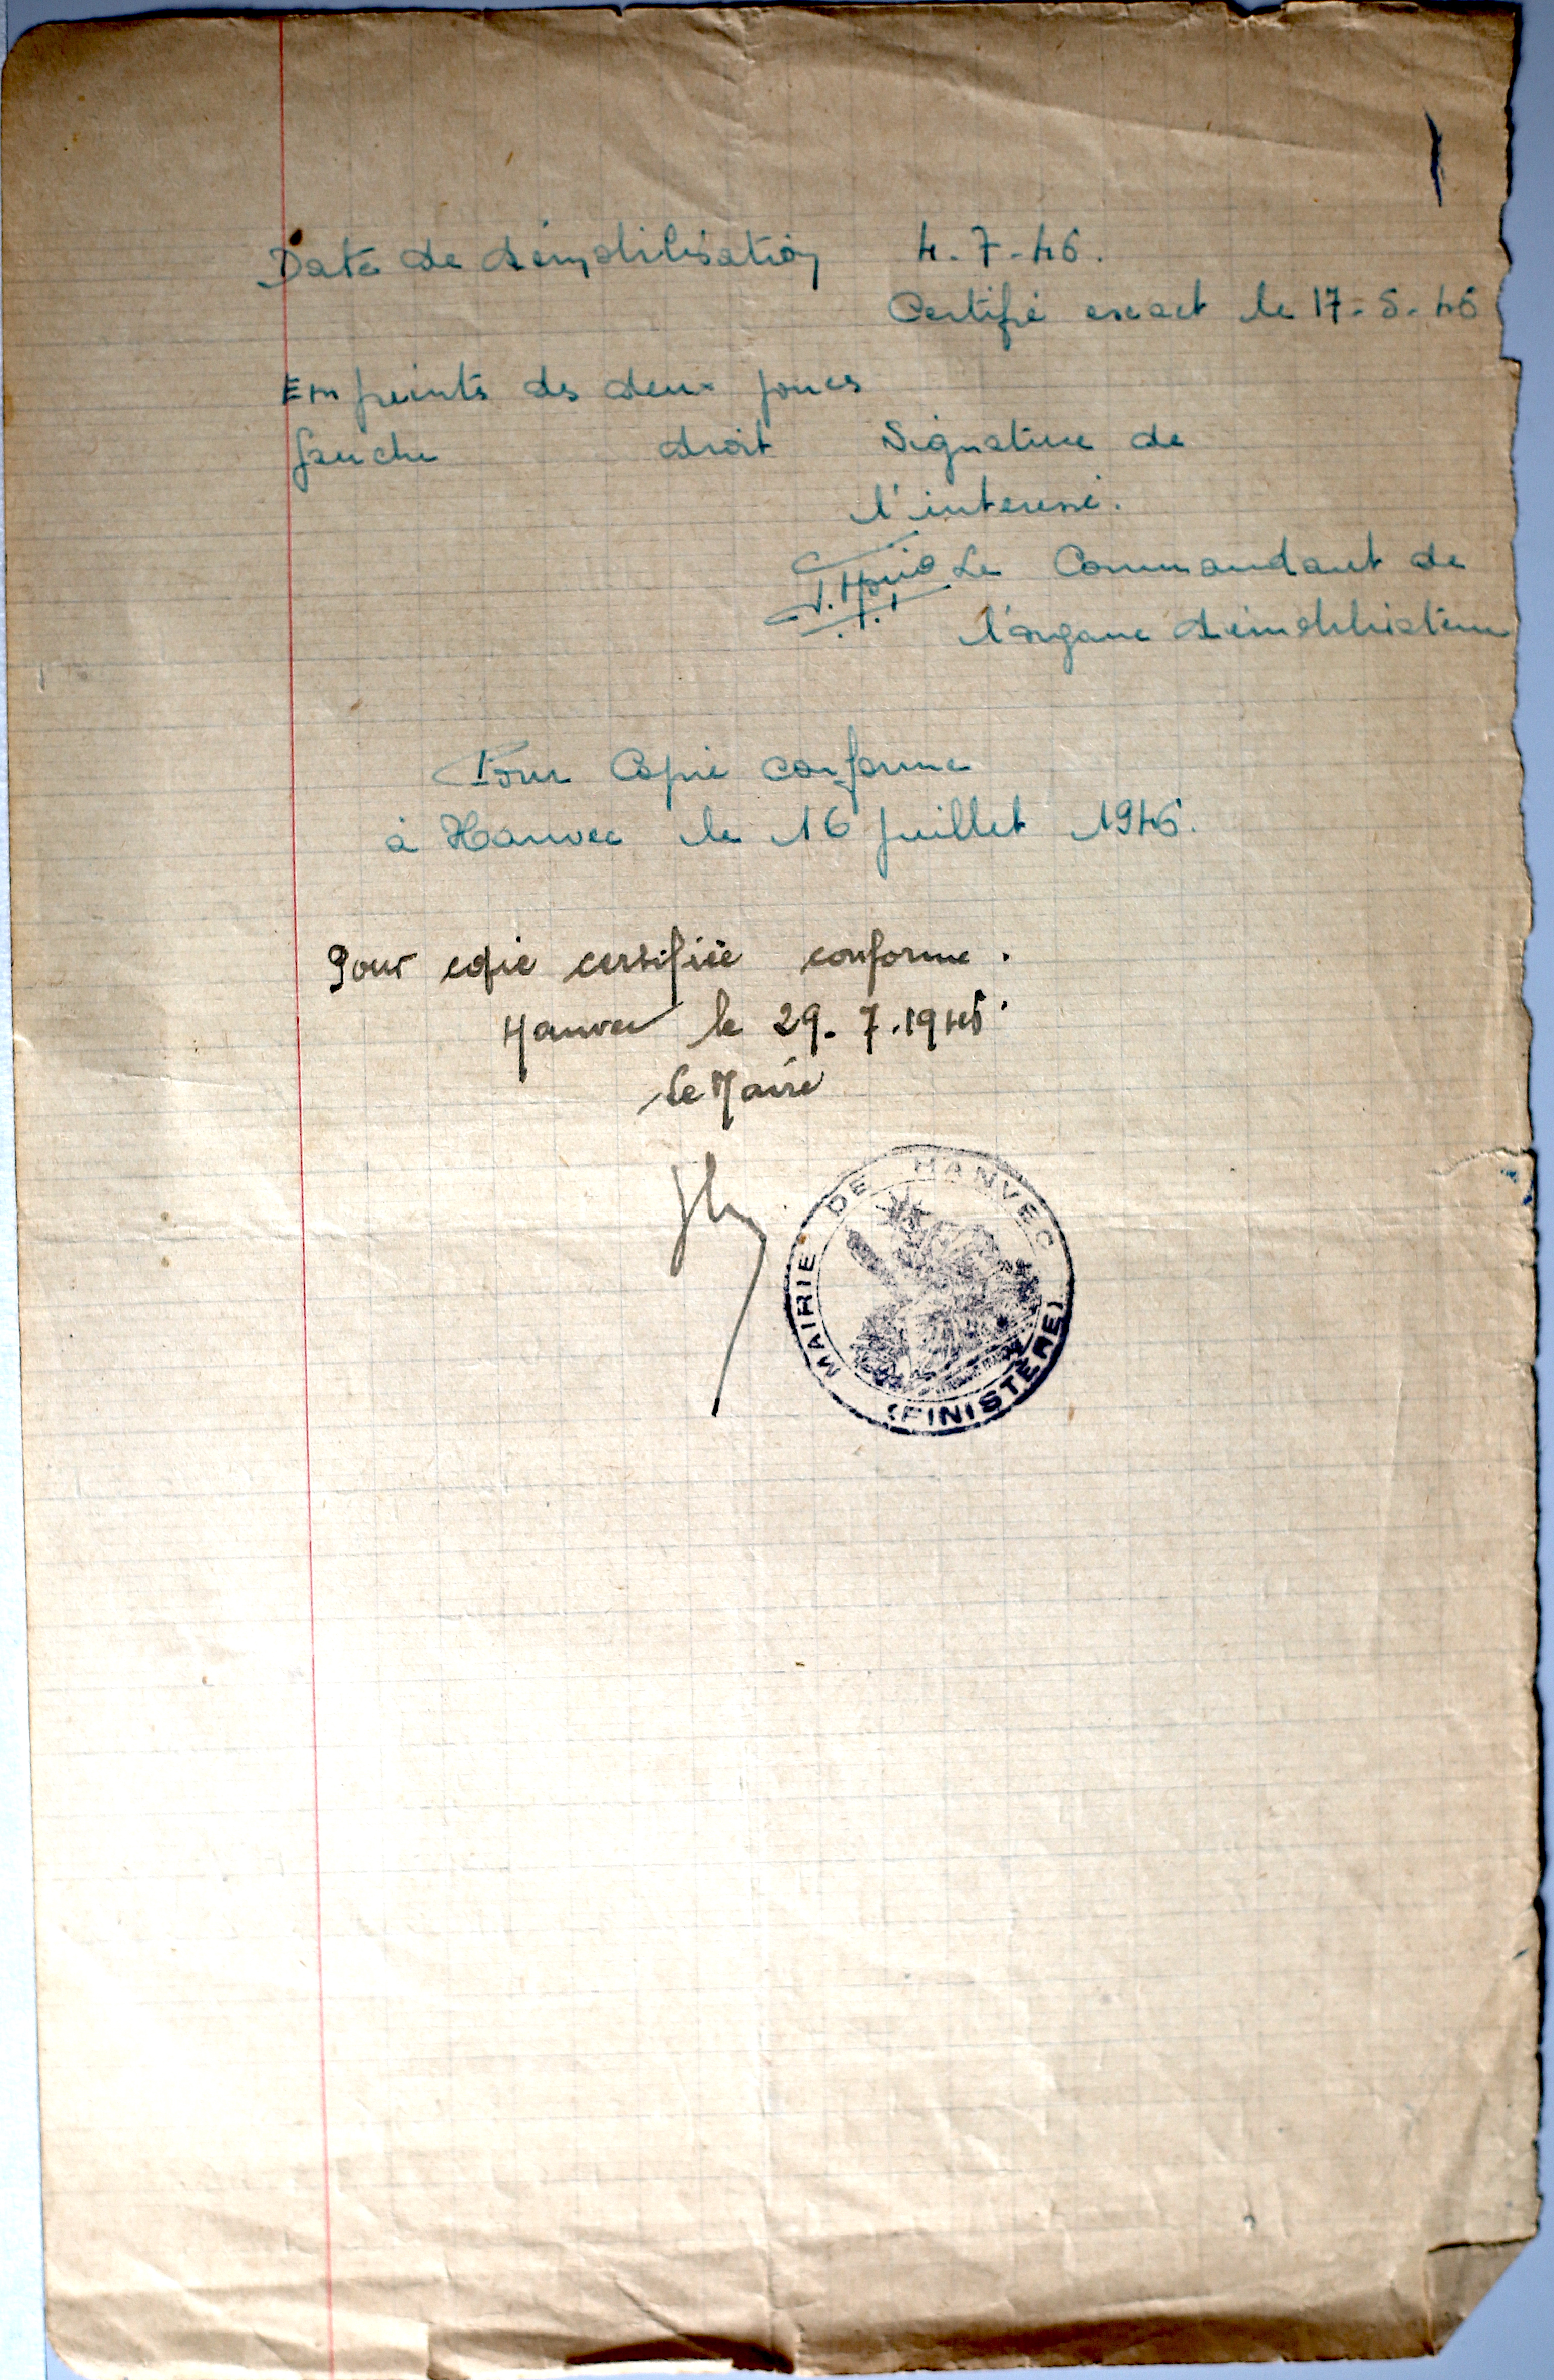 Date de démobilisation 4-7-46.
Certifié exact le 17-5-46
Empreinte des deux pouces
gauche droit Signature de
l'interessé.
Le Commandant de
l'organe démobilisateur
Pour Copie conforme
à Hanvec le 16 juillet 1946.
Pour copie certifiée conforme.
Hanvec le 29.7.1946
Le Maire
MAIRIE DE HANVEC
(FINISTÈRE)